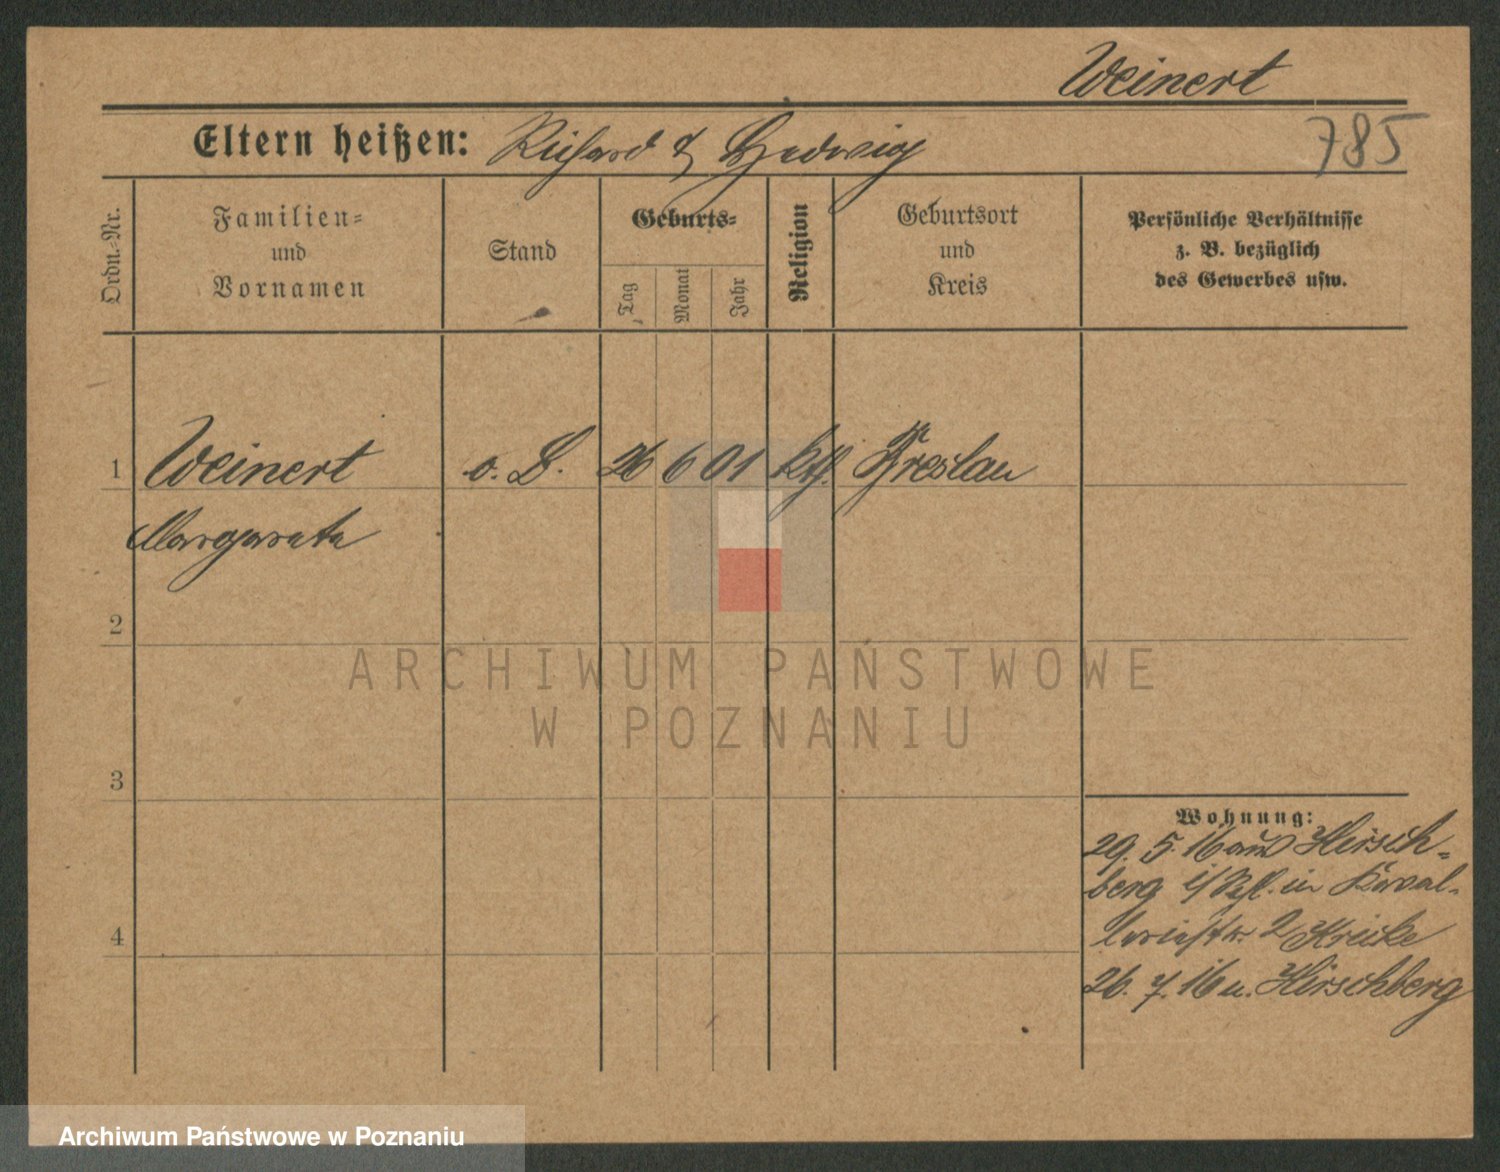 Weinert
Eltern heißen: Richard & Hedwig
785
Ordn.-Nr.
Familien-
und
Vornamen
Stand
Geburts-
Tag
Monat
Jahr
Religion
Geburtsort
und
Kreis
Persönliche Verhältnisse
z. B. bezüglich
des Gewerbes usw.
1 Weinert o. B. 26 6 01 kth. Breslau
Margareta
2
3
4
Wohnung:
29. 5. 16 aus Hirsch-
berg i/ in Kaval-
leriestr. 2
26. 7. 16 n. Hirschberg
ARCHIWUM PAŃSTWOWE
W POZNANIU
Archiwum Państwowe w Poznaniu